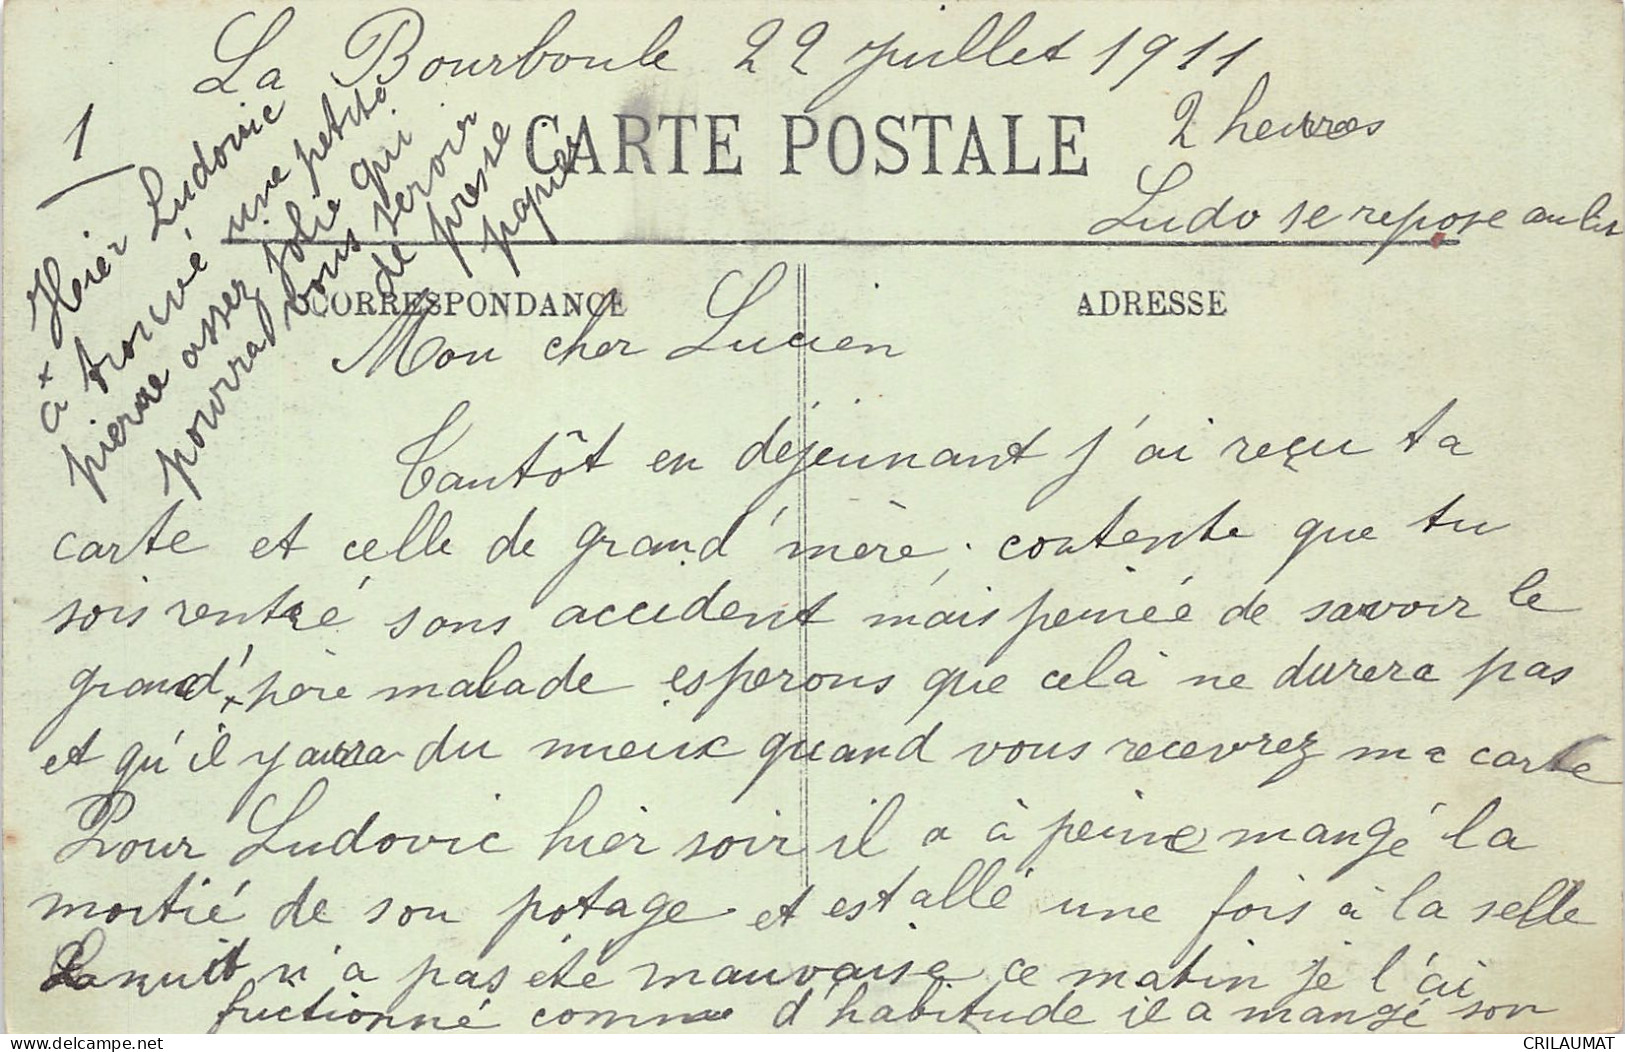 La Bourboule 22 Juillet 1911
1
2 heures
CARTE POSTALE
Ludo se repose au lit
Hier Ludovic
à trouvé une petite
pierre assez jolie qui
pourra vous servoir
de presse
papier
CORRESPONDANCE
ADRESSE
Mon cher Lucien
Tantôt en déjeunant j'ai reçu ta
carte et celle de grand'mère, contente que tu
sois rentré sans accident mais peinée de savoir le
grand'père malade esperons que celà ne durera pas
et qu'il y aura du mieux quand vous recevrez ma carte
Pour Ludovic hier soir il a à peine mangé la
moitié de son potage et est allé une fois à la selle
La nuit n'a pas été mauvaise ce matin je l'ai
frictionné comme d'habitude il a mangé son
CRILAUMAT